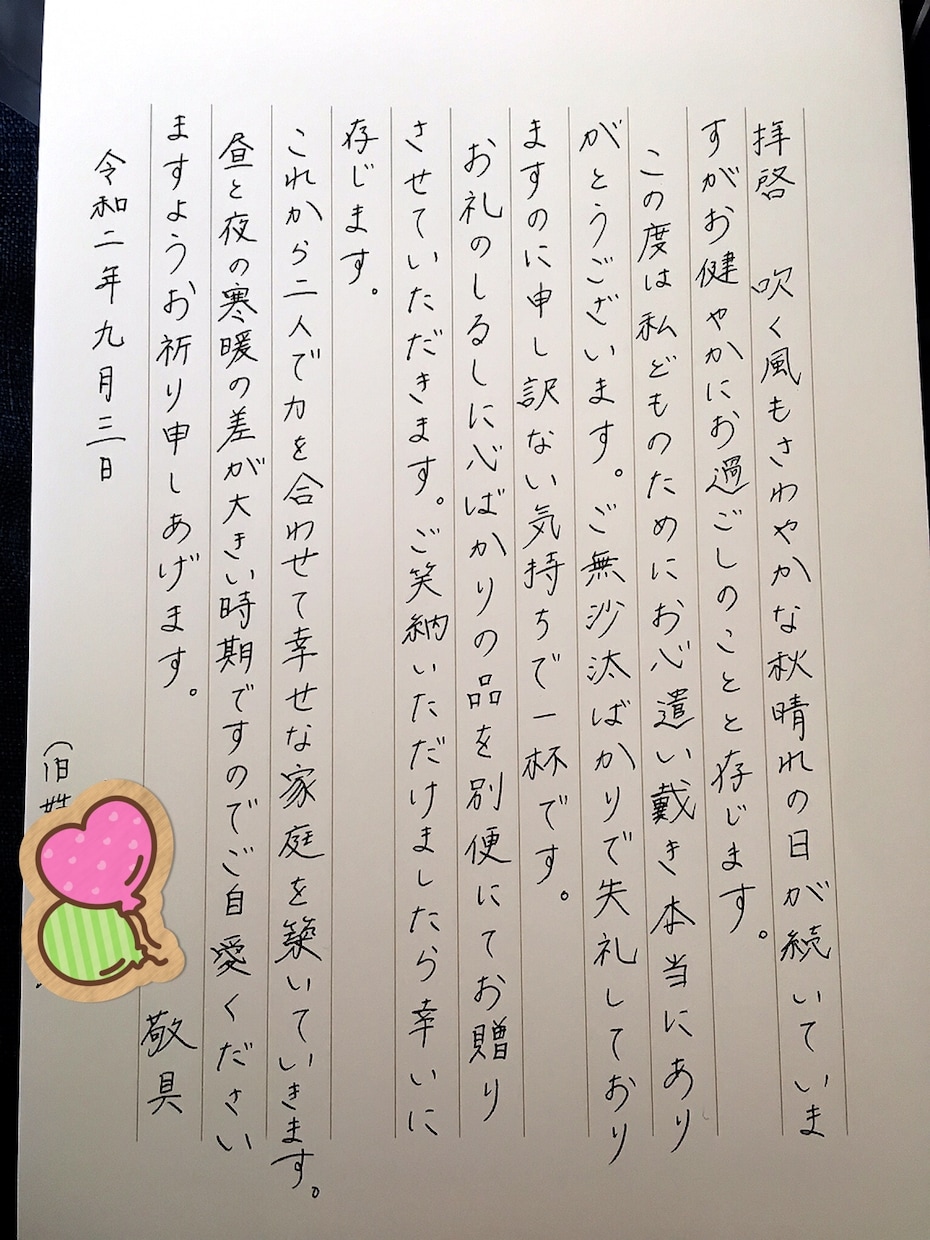 拝啓　吹く風もさわやかな秋晴れの日が続いていま
すがお健やかにお過ごしのことと存じます。
この度は私どものためにお心遣い戴き本当にあり
がとうございます。ご無沙汰ばかりで失礼しており
ますのに申し訳ない気持ちで一杯です。
お礼のしるしに心ばかりの品を別便にてお贈り
させていただきます。ご笑納いただけましたら幸いに
存じます。
これから二人で力を合わせて幸せな家庭を築いていきます。
昼と夜の寒暖の差が大きい時期ですのでご自愛ください
ますようお祈り申しあげます。
敬具
令和二年九月三日
(旧姓